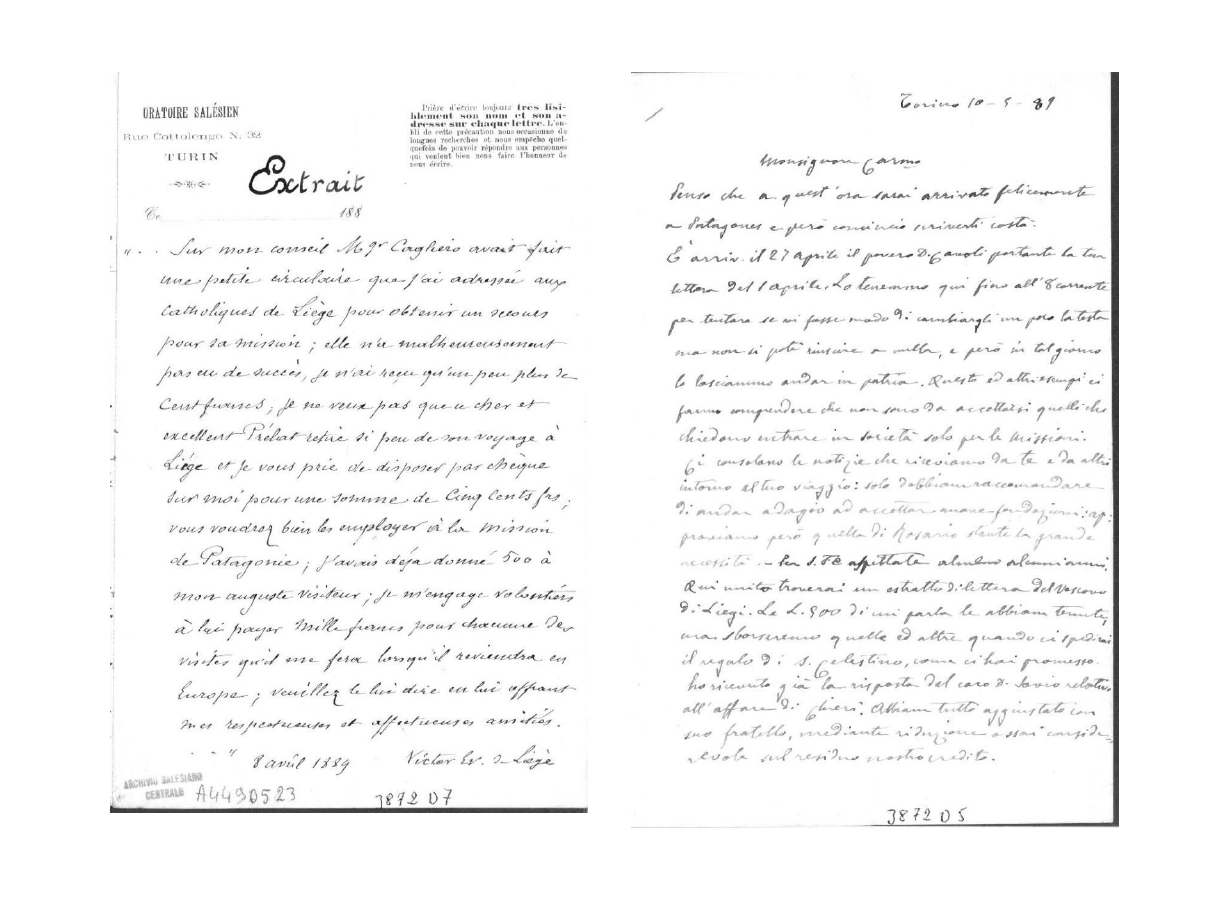 ORATOIRE SALÉSIEN
Rue Cottolengo N. 32
TURIN
Prière d'écrire toujours très lisi-
blement son nom et son a-
dresse sur chaque lettre. L'ou-
bli de cette précaution nous occasionne de
longues recherches et nous empêche quel-
quefois de pouvoir répondre aux personnes
qui veulent bien nous faire l'honneur de
nous écrire.
Extrait
Ce 188
". . Sur mon conseil Mgr Cagliero avait fait
une petite circulaire que j'ai adressée aux
Catholiques de Liège pour obtenir un secours
pour sa mission ; elle n'a malheureusement
pas eu de succès, je n'ai reçu qu'un peu plus de
Cent francs ; je ne veux pas que ce cher et
excellent Prélat retire si peu de son voyage à
Liège et je vous prie de disposer par chèque
sur moi pour une somme de Cinq Cents frs ;
vous voudrez bien les employer à la mission
de Patagonie ; j'avais déja donné 500 à
mon auguste visiteur ; je m'engage volontiers
à lui payer Mille francs pour chacune des
visites qu'il me fera lorsqu'il reviendra en
Europe ; veuillez le lui dire en lui offrant
mes respectueuses et affectueuses amitiés.
. . " 8 avril 1889 Victor Ev. de Liège
ARCHIVIO SALESIANO
CENTRALE
A4490523
3872 D7
Torino 10 - 5 - 89
Monsignore Carmo
Penso che a quest'ora sarai arrivato felicemente
a Patagones e però comincio scriverti costà.
È arriv. il 27 aprile il povero D. portante la tua
lettera del 1 aprile. Lo tenemmo qui fino all'8 corrente
per tentare se vi fosse modo di cambiargli un poco la testa
ma non si potè riuscire a nulla, e però in tal giorno
lo lasciammo andar in patria. Questo ed altri esempi ci
fanno comprendere che non sono da accettarsi quelli che
chiedono entrare in società solo per le missioni.
Ci consolano le notizie che riceviamo da te e da altri
intorno al tuo viaggio: solo dobbiam raccomandare
di andar adagio ad accettar nuove fondazioni: ap:
proviamo però quella di Rosario stante la grande
necessità. - Per S. Fè aspettate almeno alcuni anni.
Qui unito troverai un estratto di lettera del Vescovo
di Liegi. Le L. 500 di cui parla le abbiam tenute,
ma sborseremo quelle ed altre quando ci spedirai
il regalo di S. Celestino, come ci hai promesso.
Ho ricevuto già la risposta del caro D. Savio relativo
all'affare di Chieri. Abbiam tutto aggiustato con
suo fratello, mediante riduzione assai conside=
revole sul residuo nostro credito.
3872 D5